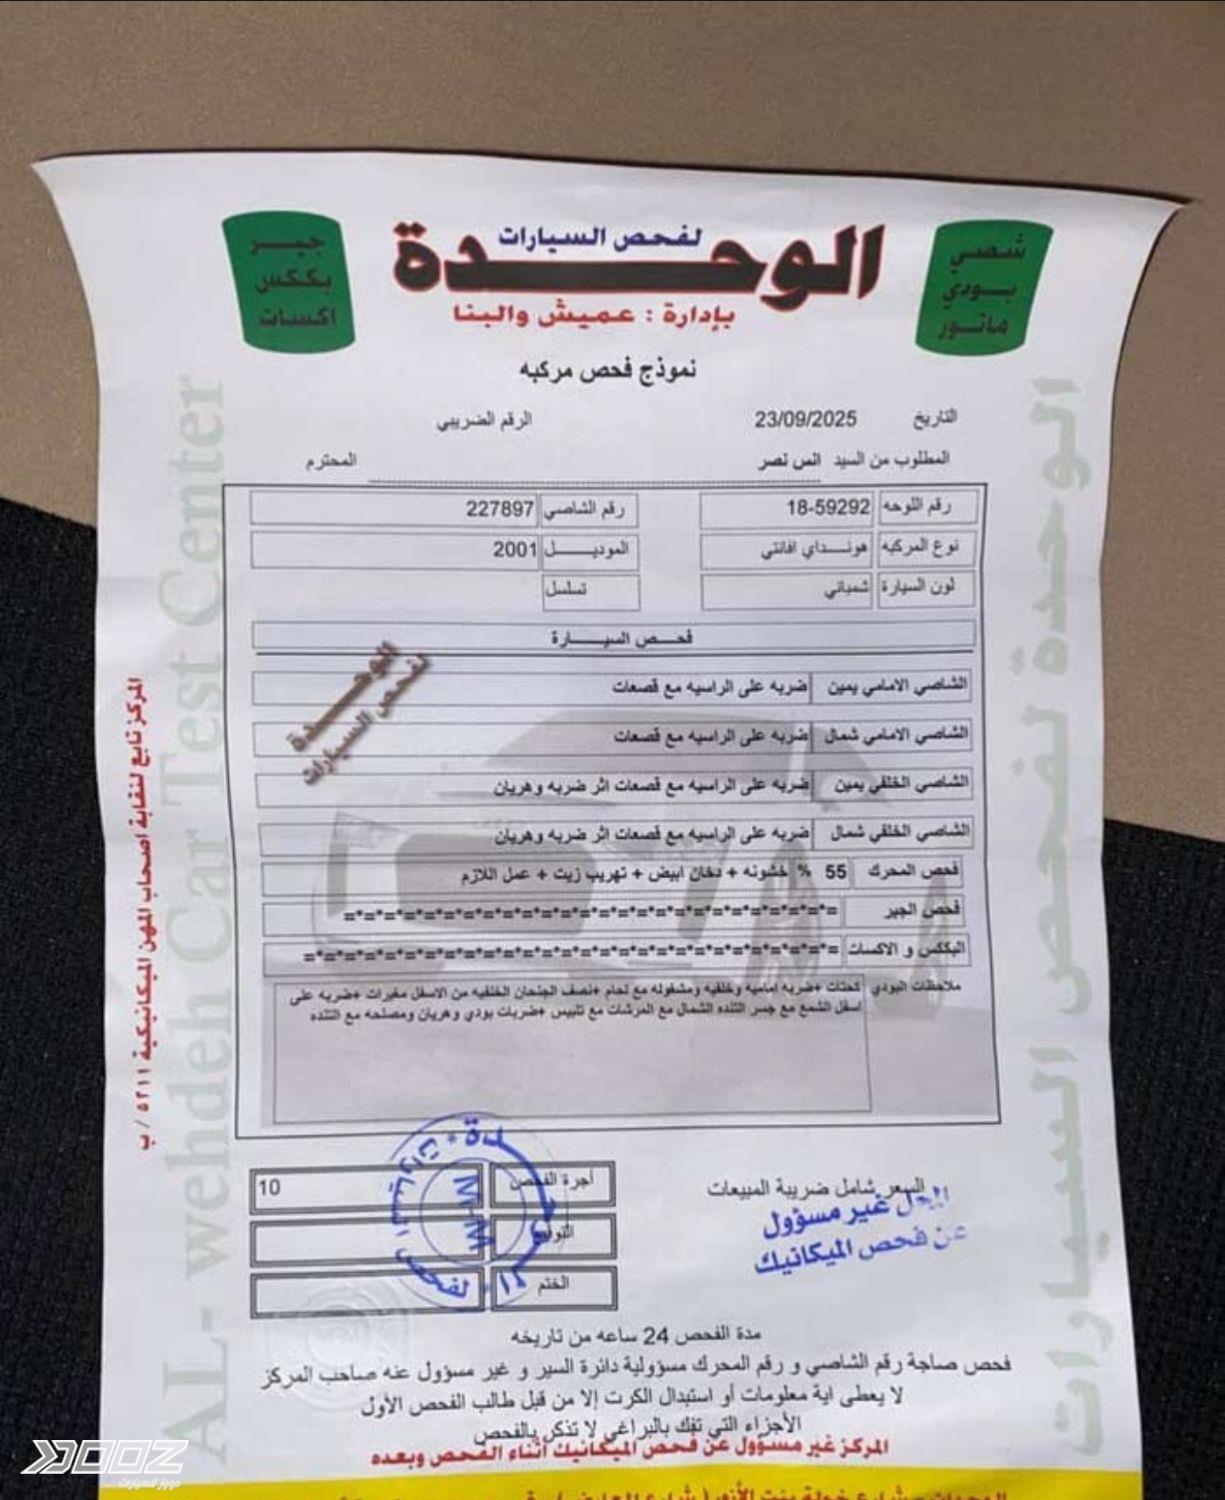 شصي
بودي
ماتور
لفحص السيارات
الوحدة
بإدارة : عميش والبنا
جير
بككس
اكسات
نموذج فحص مركبه
التاريخ 23/09/2025 الرقم الضريبي
المطلوب من السيد انس نصر المحترم
رقم اللوحه 18-59292 رقم الشاصي 227897
نوع المركبه هونداي افانتي الموديل 2001
لون السيارة شمباني تسلسل
فحص السيارة
الوحدة
لفحص السيارات
الشاصي الامامي يمين ضربه على الراسيه مع قصعات
الشاصي الامامي شمال ضربه على الراسيه مع قصعات
الشاصي الخلفي يمين ضربه على الراسيه مع قصعات اثر ضربه وهريان
الشاصي الخلفي شمال ضربه على الراسيه مع قصعات اثر ضربه وهريان
فحص المحرك 55 % خشونه + دخان ابيض + تهريب زيت + عمل اللازم
فحص الجير =*=*=*=*=*=*=*=*=*=*=*=*=*=*=*=*=*=*=*=*=*=*=*=*=
البككس و الاكسات =*=*=*=*=*=*=*=*=*=*=*=*=*=*=*=*=*=*=*=*=*=*=*=*=*=*=
ملاحظات البودي كحتات +ضربه اماميه وخلفيه ومشغوله مع لحام +نصف الجنحان الخلفيه من الاسفل مغيرات +ضربه على
اسفل الشمع مع جسر التنده الشمال مع المرشات مع تلبيس +ضربات بودي وهريان ومصلحه مع التنده
السعر شامل ضريبة المبيعات
أجرة الفحص 10
التوقيع
الختم
المحل غير مسؤول
عن فحص الميكانيك
الوحدة لفحص السيارات
M-M
مدة الفحص 24 ساعه من تاريخه
فحص صاجة رقم الشاصي و رقم المحرك مسؤولية دائرة السير و غير مسؤول عنه صاحب المركز
لا يعطى اية معلومات أو استبدال الكرت إلا من قبل طالب الفحص الأول
الأجزاء التي تفك بالبراغي لا تذكر بالفحص
المركز غير مسؤول عن فحص الميكانيك أثناء الفحص وبعده
المركز تابع لنقابة اصحاب المهن الميكانيكية ٥٢١١ / ب
AL- wehdeh Car Test Center
الوحدة لفحص السيارات
DOOZ
دووز للسيارات